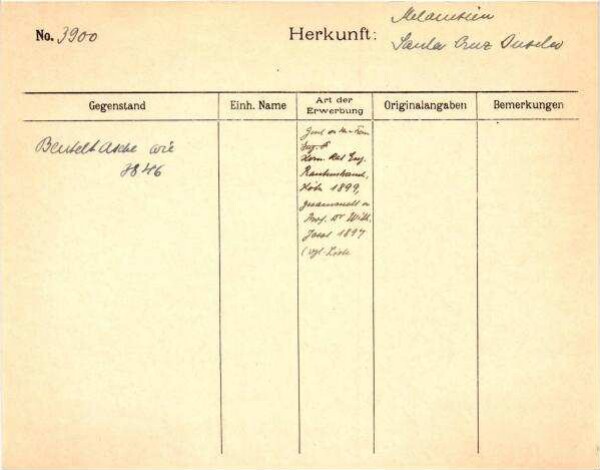 No. 3900
Herkunft: Melanesien
Santa Cruz Inseln
Gegenstand
Einh. Name
Art der Erwerbung
Originalangaben
Bemerkungen
Beuteltasche wie
3846
Köln 1899,
gesammelt v.
Prof. Dr. Wilh.
Joest 1897
(vgl. Liste